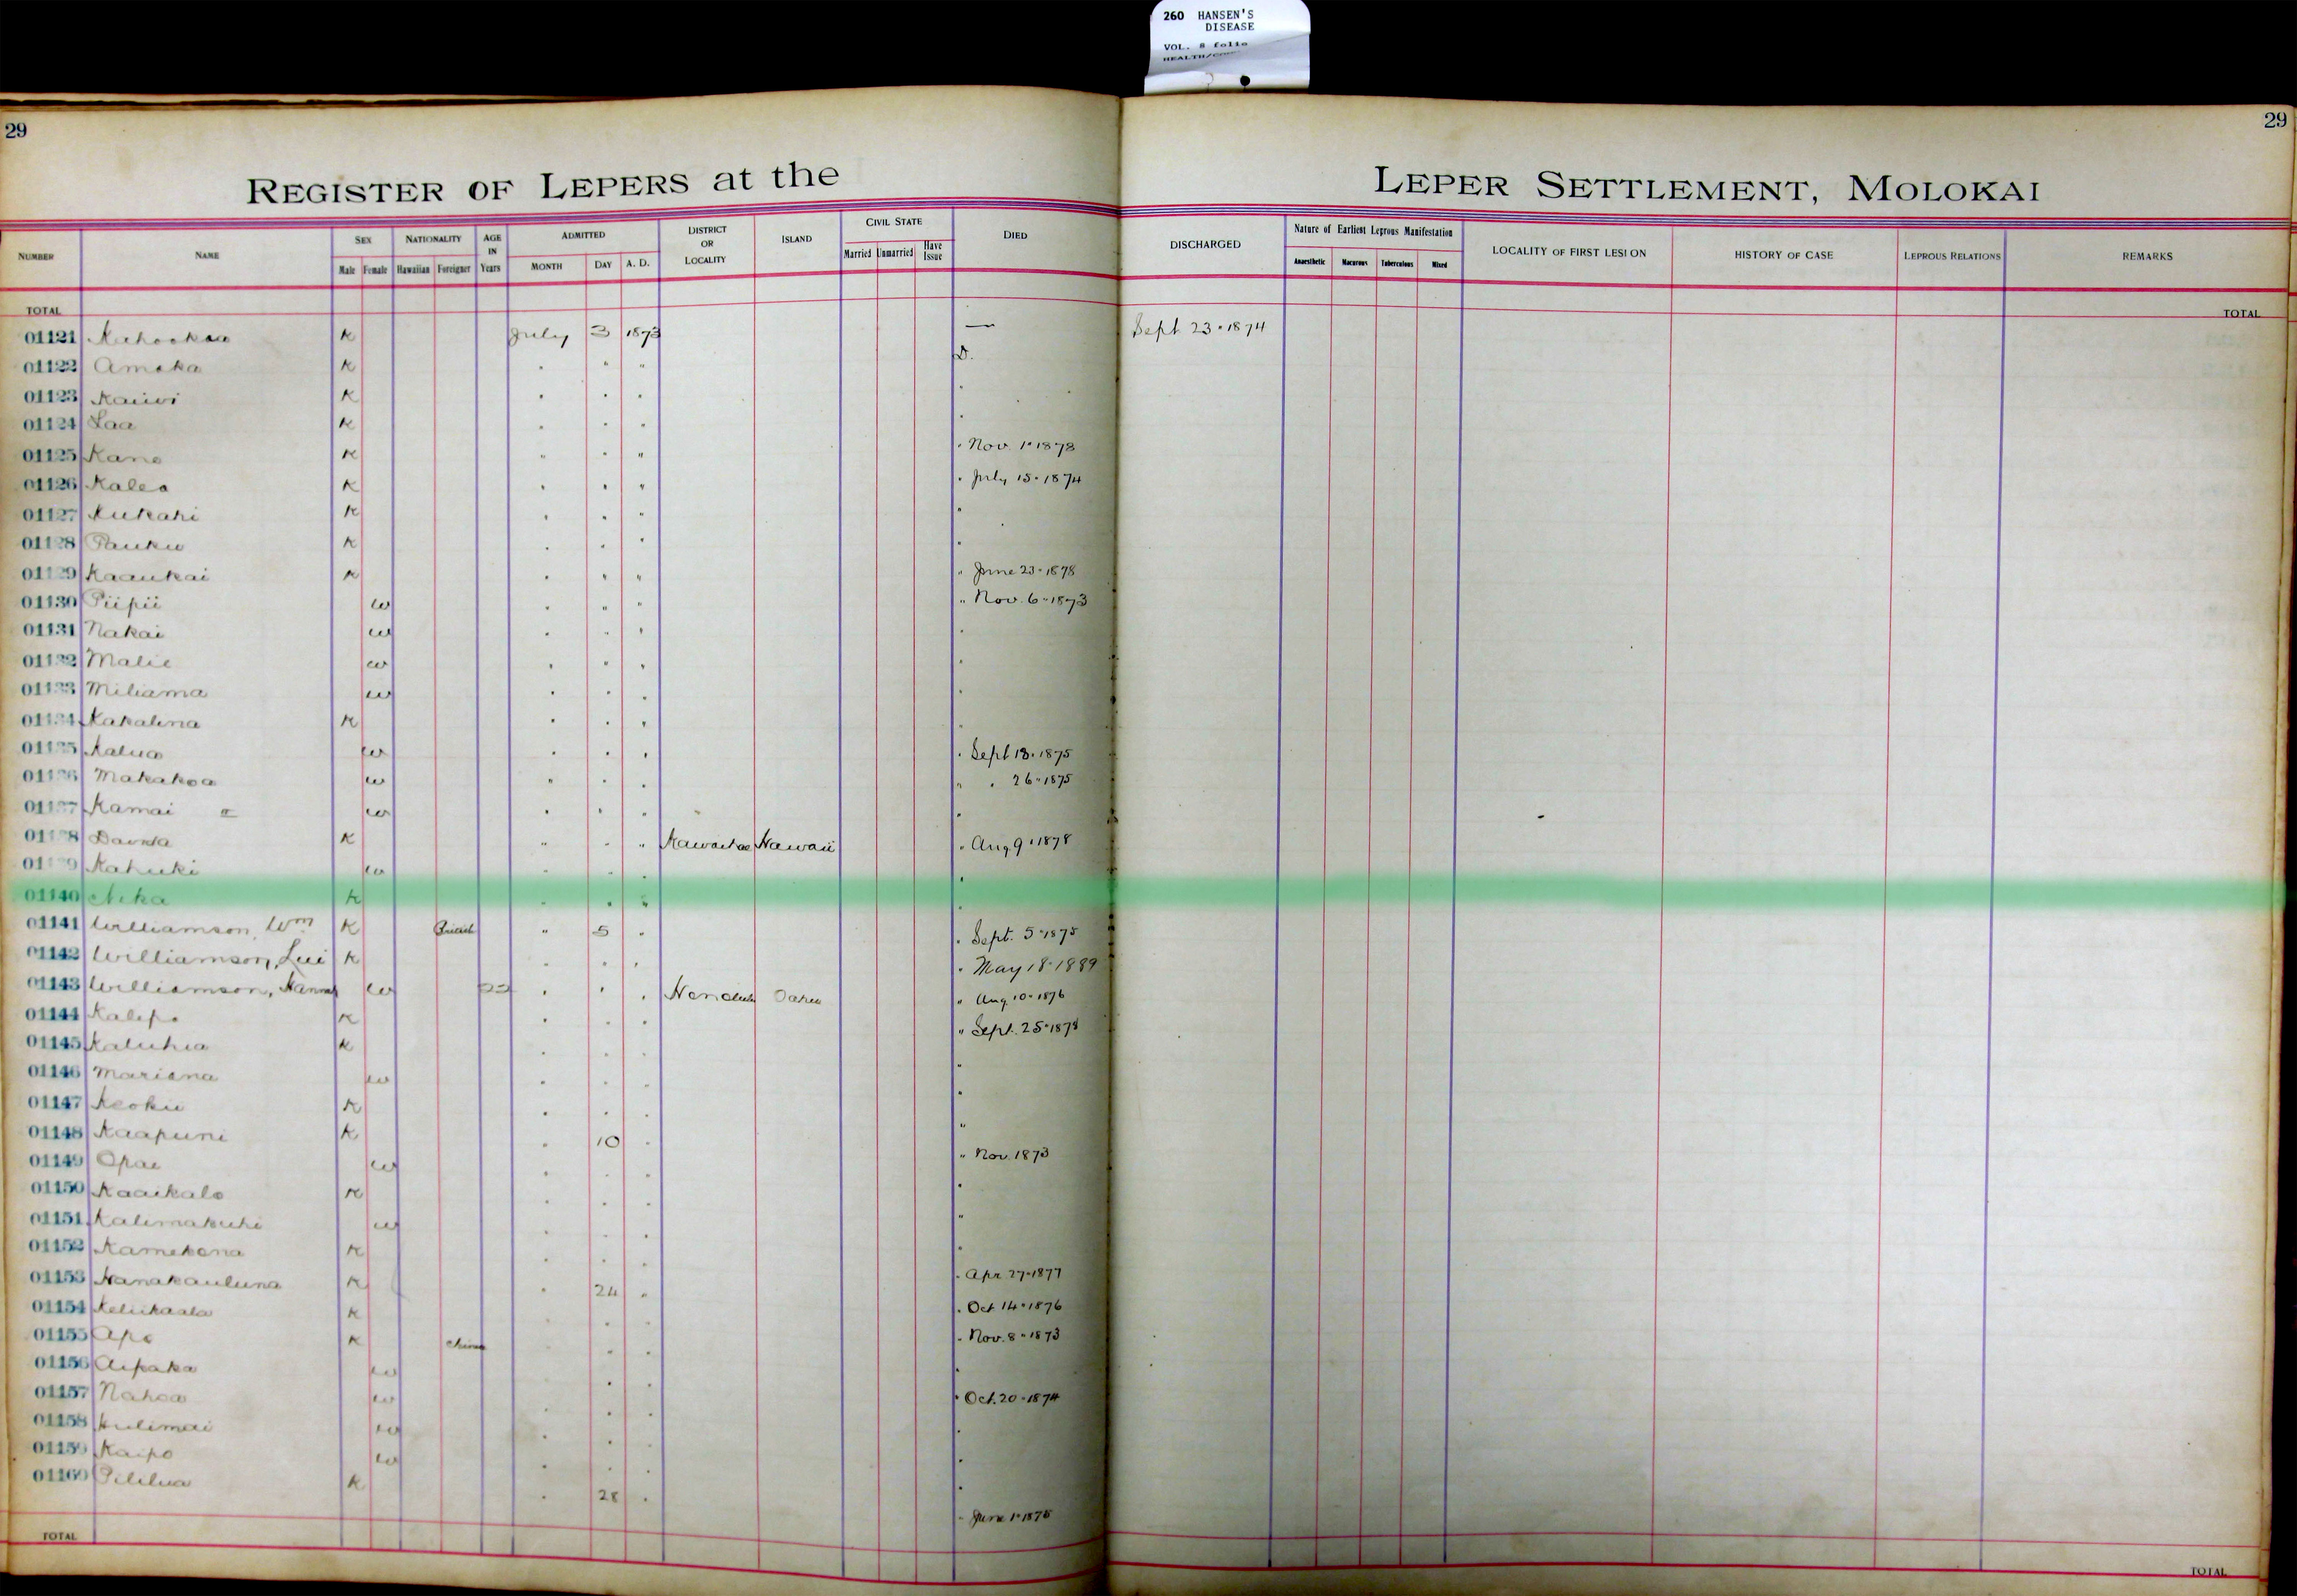 260 HANSEN'S
DISEASE
VOL. 8 folio
29
29
REGISTER OF LEPERS at the LEPER SETTLEMENT, MOLOKAI
NUMBER NAME SEX Male Female NATIONALITY Hawaiian Foreigner AGE IN Years ADMITTED MONTH DAY A. D. DISTRICT OR LOCALITY ISLAND CIVIL STATE Married Unmarried Have Issue DIED DISCHARGED Nature of Earliest Leprous Manifestation Anaesthetic Macurous Tuberculous Mixed LOCALITY OF FIRST LESION HISTORY OF CASE LEPROUS RELATIONS REMARKS
TOTAL TOTAL
01121 K July 3 1873 — Sept 23 · 1874
01122 Amaka K " " " D.
01123 Kaiwi K " " " "
01124 Laa K " " " "
01125 Kane K " " " " Nov. 1 · 1878
01126 Kalea K " " " " July 15 · 1874
01127 Kukahi K " " " "
01128 Pauku K " " " "
01129 Kaaukai K " " " " June 23 · 1878
01130 Piipii w " " " " Nov. 6 · 1873
01131 Nakai w " " " "
01132 Malie w " " " "
01133 Miliama w " " " "
01134 Kakalina K " " " "
01135 Kalua w " " " " Sept 18 · 1875
01136 Makakoa w " " " " " 26 · 1875
01137 Kamai w " " " "
01138 K " " " Kawaihae Hawaii " Aug 9 · 1878
01139 Kahuki w " " " "
01140 K " " " "
01141 Williamson, Wm K British " 5 " " Sept. 5 · 1875
01142 Williamson, K " " " " May 18 · 1889
01143 Williamson, Hannah w " " " Honolulu Oahu " Aug. 10 · 1876
01144 K " " " " Sept. 25 · 1878
01145 Kaluhia K " " " "
01146 Mariana w " " " "
01147 Keoku K " " " "
01148 Kaapuni K " 10 " "
01149 Opae w " " " " Nov. 1873
01150 Kaaikalo K " " " "
01151 Kalimakuhi w " " " "
01152 Kamekona K " " " "
01153 Nanakauluna K " 24 " " Apr 27 · 1877
01154 Keliikaala K " " " " Oct 14 · 1876
01155 Apo K China " " " " Nov. 8 · 1873
01156 Aipaka w " " " "
01157 Nahoa w " " " " Oct. 20 · 1874
01158 w " " " "
01159 Kaipo w " " " "
01160 Pililua K " 28 " " June 1 · 1875
TOTAL TOTAL